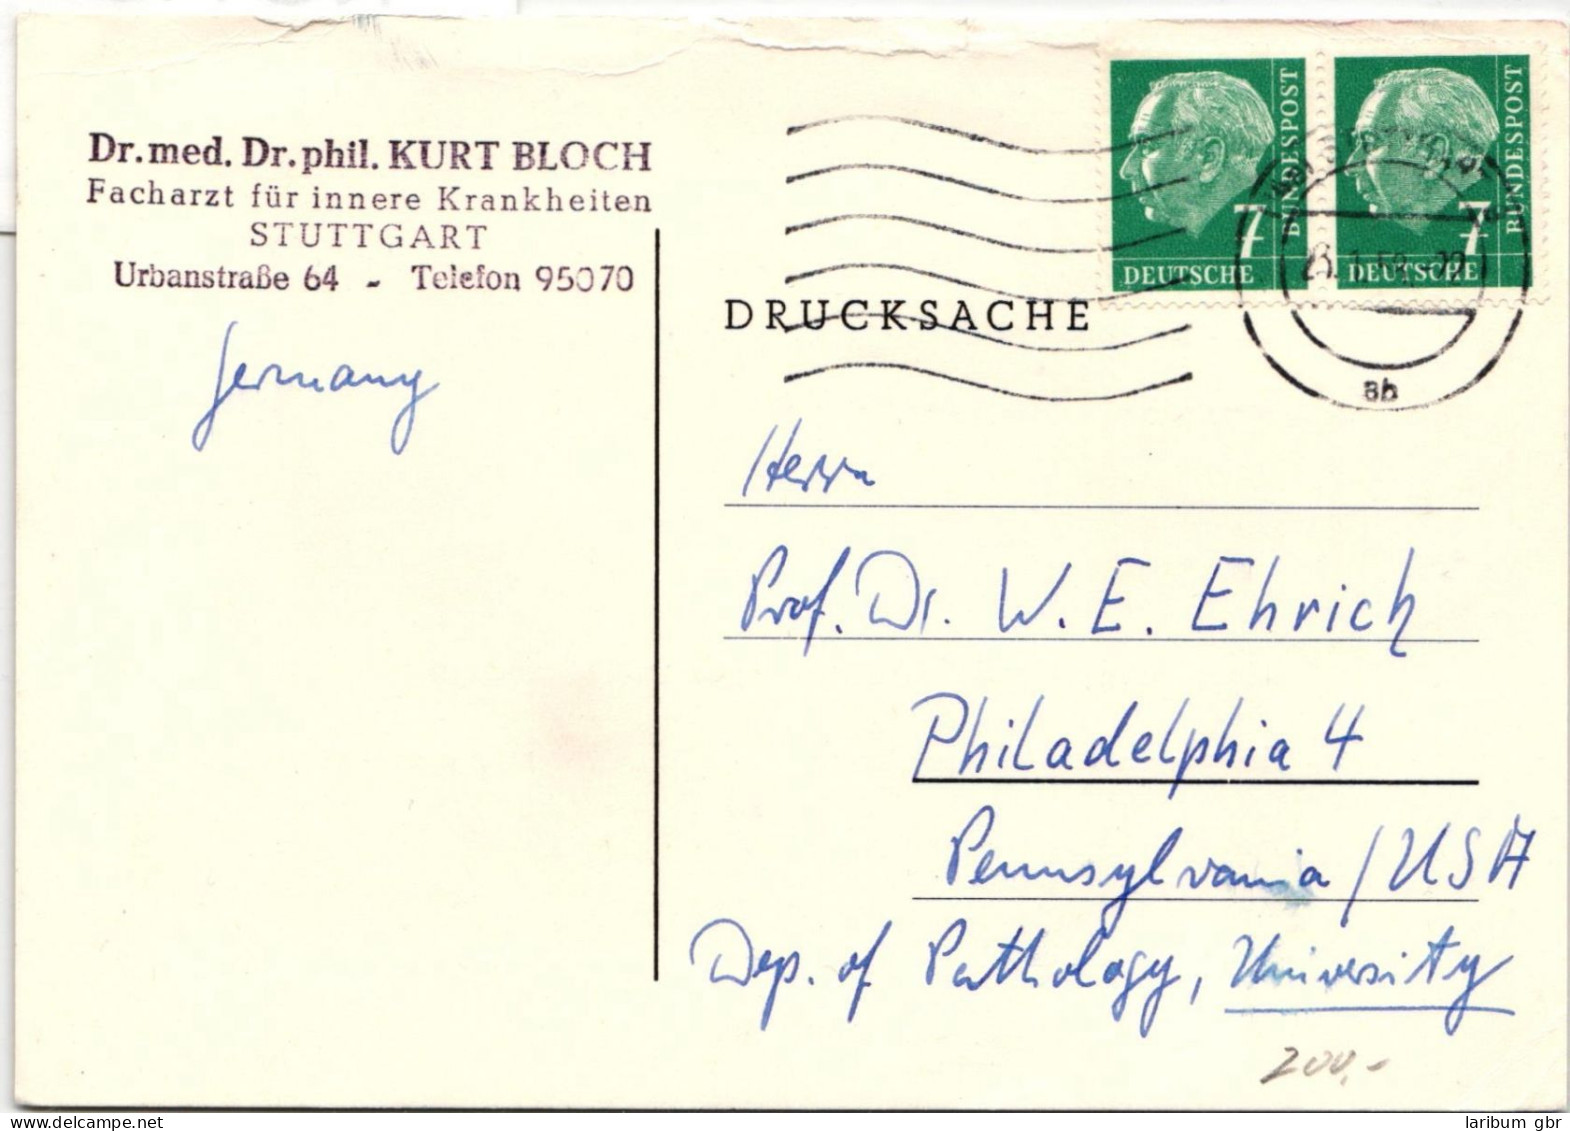 Dr. med. Dr. phil. KURT BLOCH
Facharzt für innere Krankheiten
STUTTGART
Urbanstraße 64 - Telefon 95070
Germany
7
DEUTSCHE
BUNDESPOST
7
DEUTSCHE
BUNDESPOST
ab
DRUCKSACHE
Herrn
Prof. Dr. W. E. Ehrich
Philadelphia 4
Pennsylvania / USA
Dep. of Pathology, University
200,-
laribum gbr